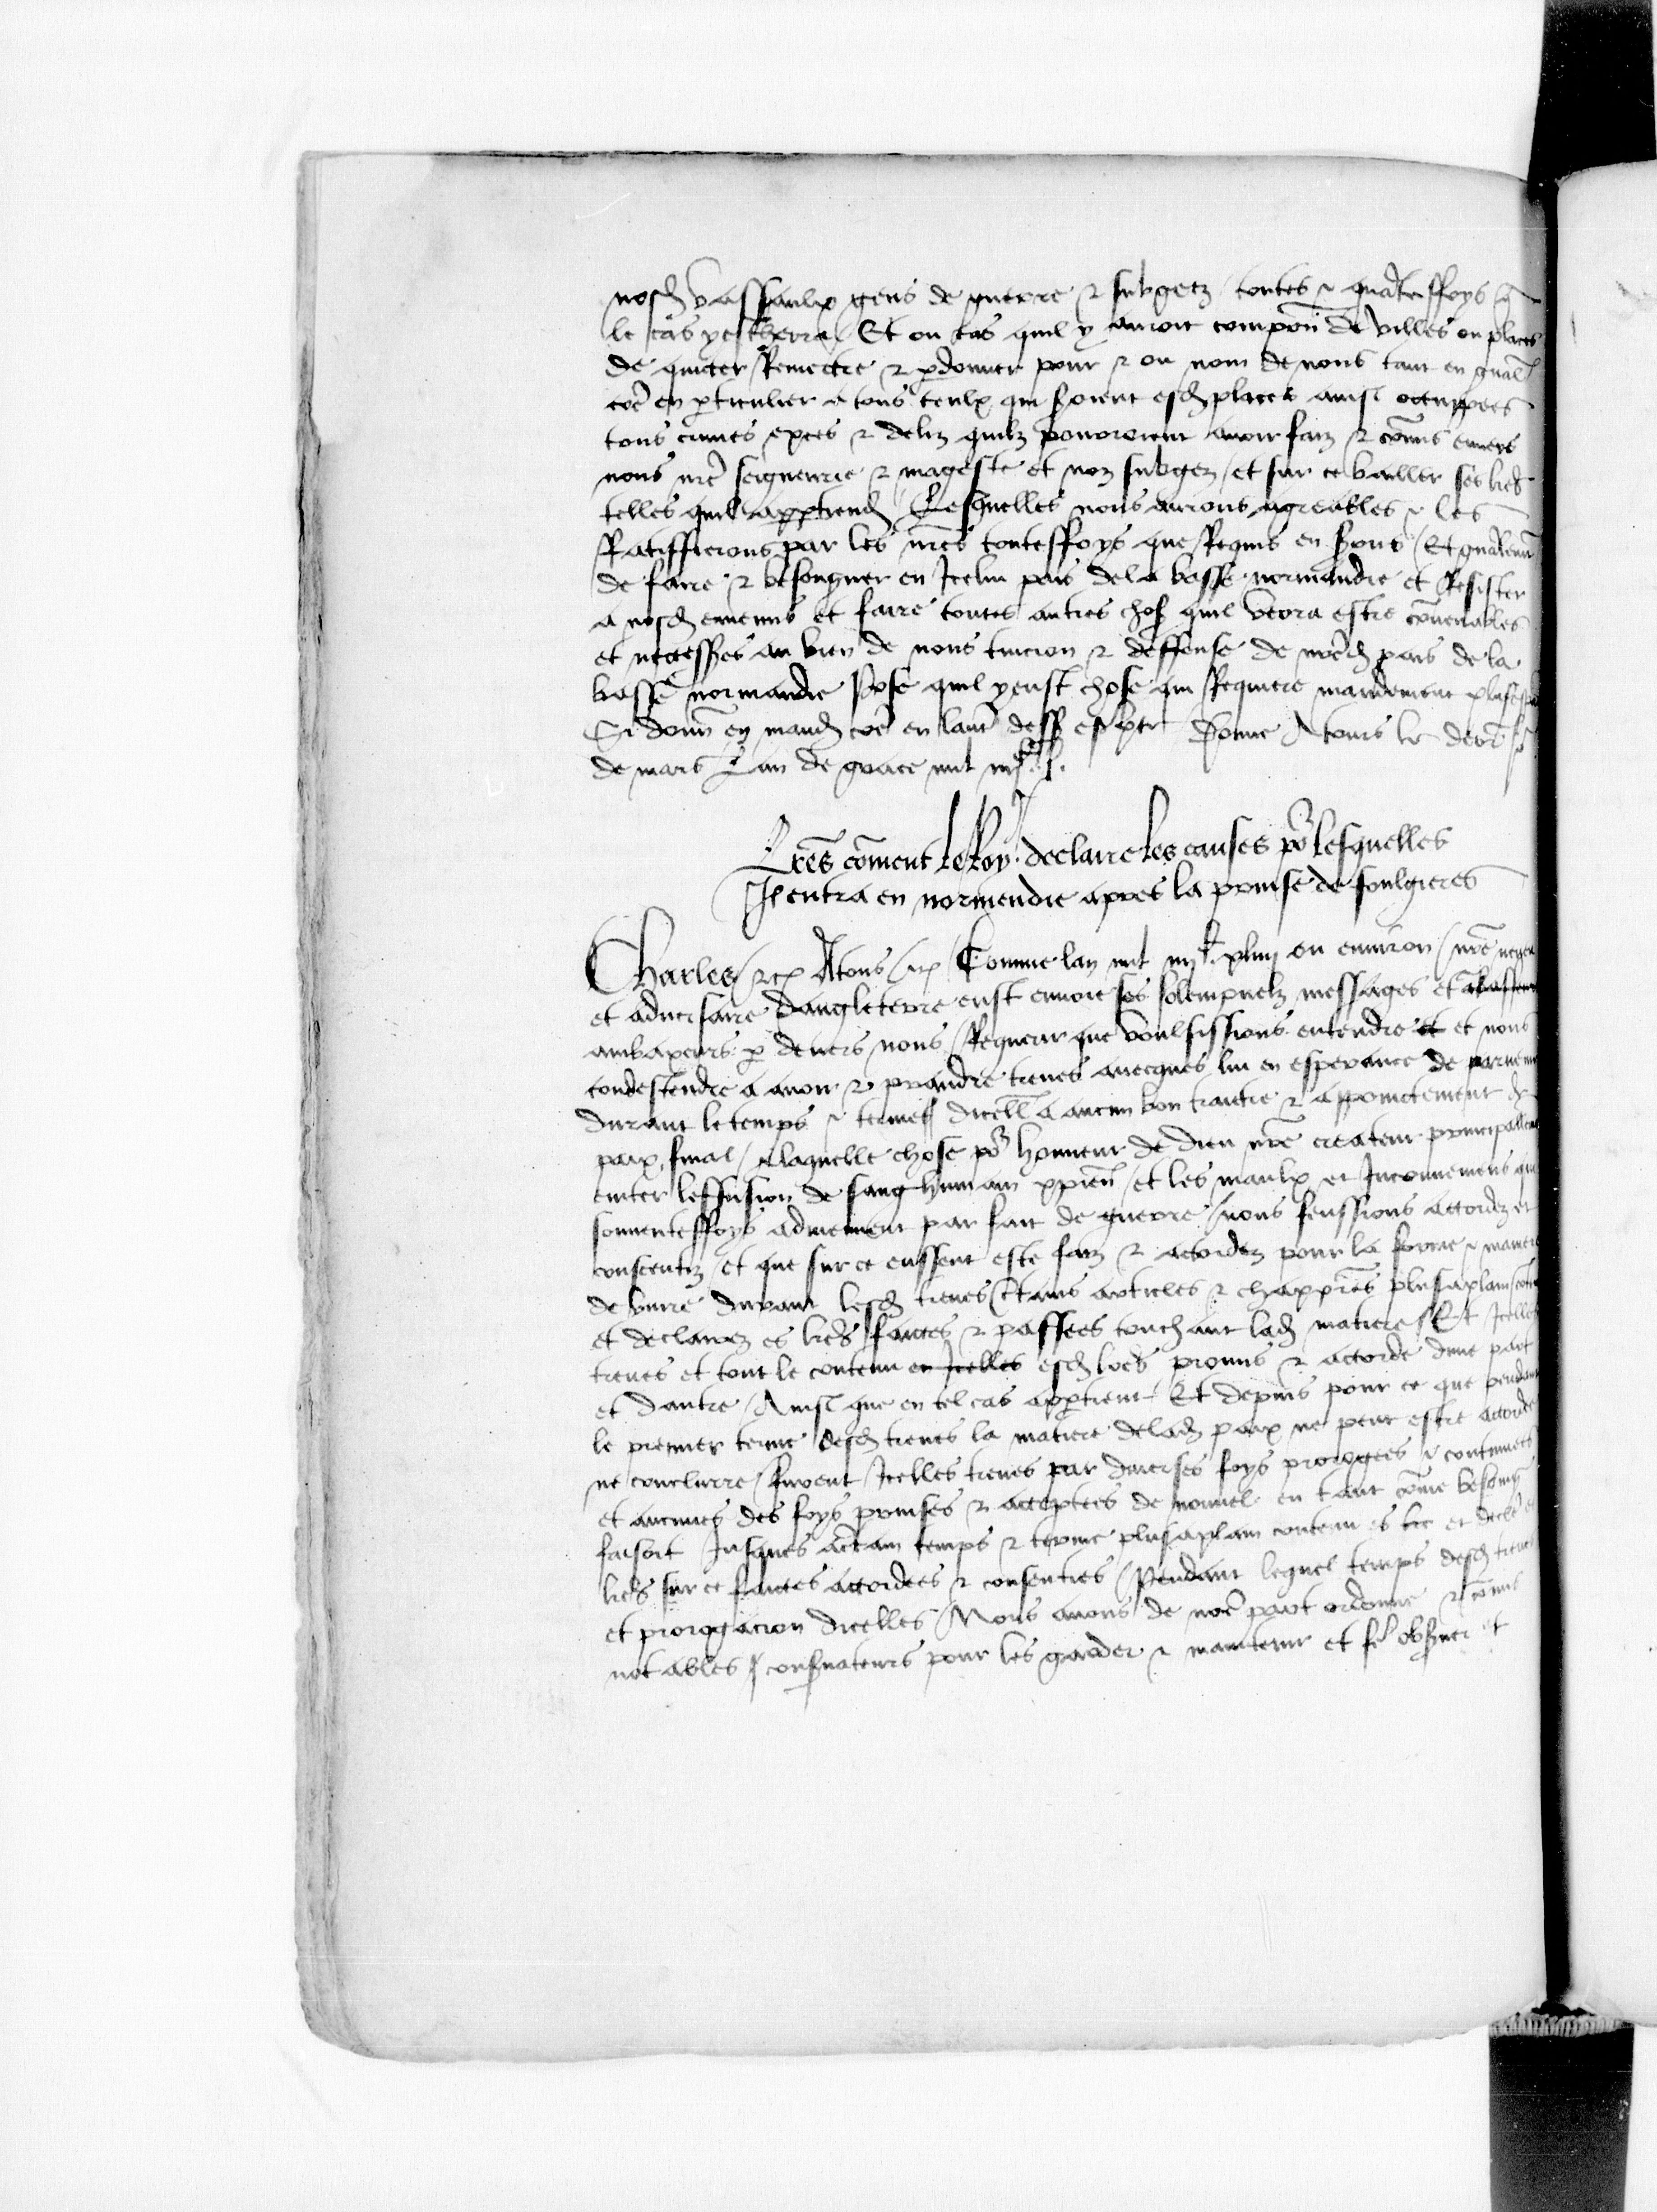 nosd vassaulx gens de guerre & subgetz toutes & quanteffoys q
le cas y escherra Et ou cas quil y auroit compon de villes ou places
de quicter Remectre & pdonner pour & ou nom de nous tant en gnal
coe en pticulier a tous ceulx qui seroient esd places ainsi occuppees
tous crimes exces & deliz quilz pouoroient auoir faiz & comis enuers
nous nre seigneurie & mageste et noz subgez et sur ce bailler ses lres
telles quil apptiend Lesquelles nous aurons agreables & les
Ratiffierons par les nres touteffoys que Requis en serons Et gnalemt
de faire & besongner en Icelui pais de la basse normandie et Resister
a nosd ennemis et faire toutes autres chos quil verra estre conuenables
et necesses au bien de nous tuicion & deffense de nred pais de la
basse normandie pose quil y eust chose qui Requiere mandement plus espal
Si donn en mand coe en lautre dess escpte Donne A tours le derr jo
de mars Lan de grace mil iiij
Lres coment le Roy declaire les causes po lesquelles
Il entra en normendie apres la prinse de foulgieres
Charles &c A tous &c Comme lan mil iiij xliij ou enuiron nre nepueu
et aduersaire dangleterre eust enuoie ses solempnelz messages et
ambaxeurs p deuers nous Requerir que voulsissions entendre et et nous
condescendre a auoir & prandre treues auecques lui en esperance de paruenir
durant le temps & terme dicell a aucun bon traictie & appoinctement de
paix final a laquelle chose po honneur de dieu nre createur principallemt
euiter leffusion de sang humain xpien et les maulx et Inconueniens qui
souuenteffoys aduiennent par fait de guerre nous feussions accordez et
consentiz et que sur ce eussent este faiz & accordez pour la forme & maniere
de viure durant lesd treues ctains articles & chappitres plus aplain
et declairez es lres faictes & passees touchant lad matiere Et Icelles
treues et tout le contenu en Icelles esd lres promis & accorde dune part
et dautre Ainsi que en tel cas appartient Et depuis pour ce que pendant
le premier terme desd treues la matiere delad paix ne peut estre accordee
ne conclurre furent Icelles treues par diuerses foys prorogees & continuees
et aucunes des foys prinses & acceptees de nouuel en tant come besoing
faisoit Jusques a ctain temps & terme plus aplain contenu es
lres sur ce faictes accordees & consenties Pendant lequel temps desd treues
et prorogacion dicelles Nous auons de nre part ordonne & comis
notables consuateurs pour les garder & maintenir et fe obseruer et